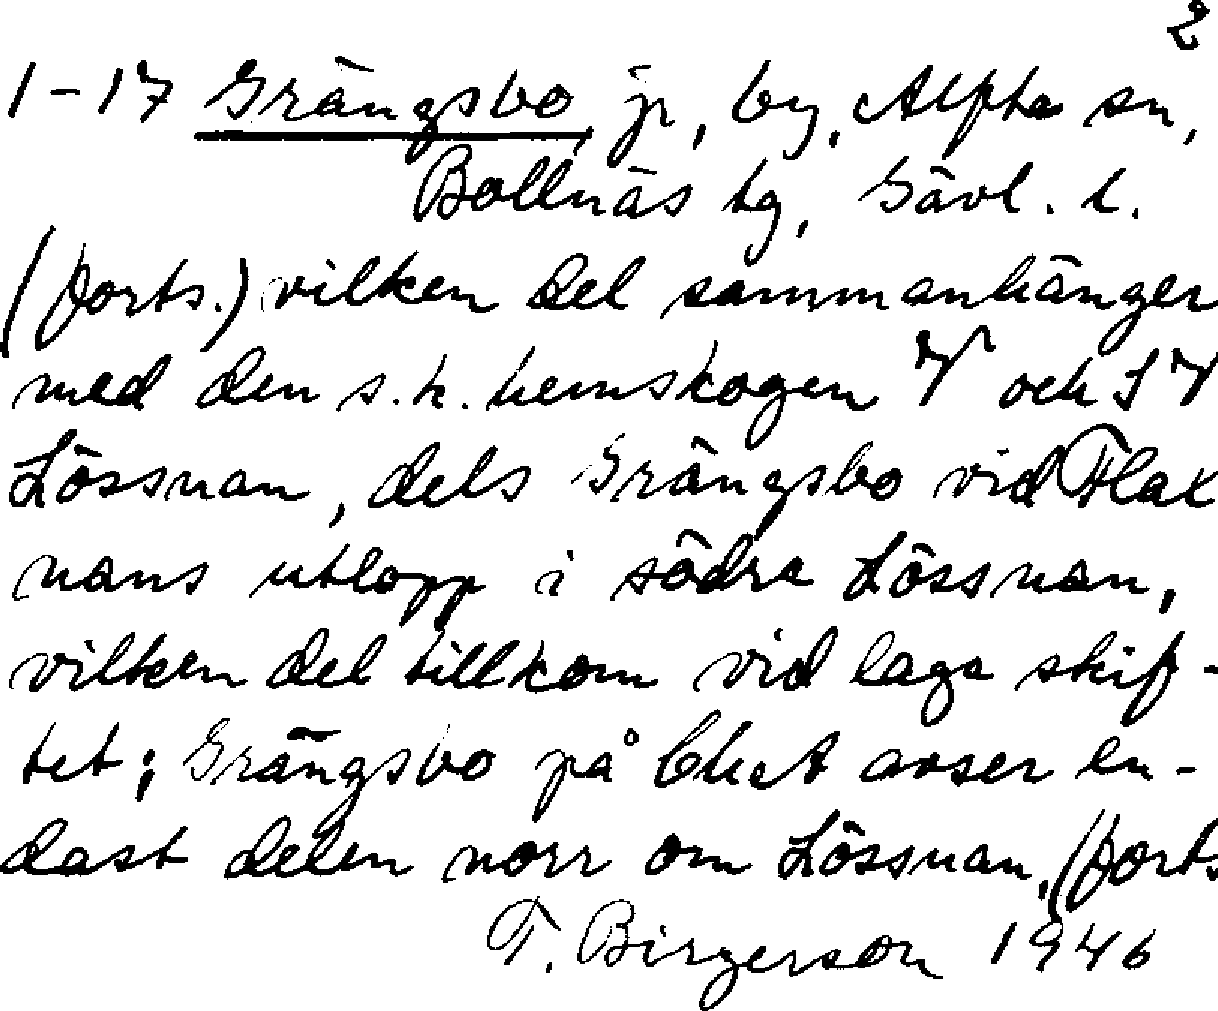 2
1-17 Grängsbo, jr, by, Alfta sn,
Bollnäs tg, Gävl. l.
(forts.) vilken del sammanhänger
med den s.k. hemskogen V och SV
Lössnan, dels Grängsbo vid Flax
nans utlopp i södra Lössnan,
vilken del tillkom vid laga skif-
tet; Grängsbo på avser en-
dast delen norr om Lössnan, (forts
T. Birgerson 1946